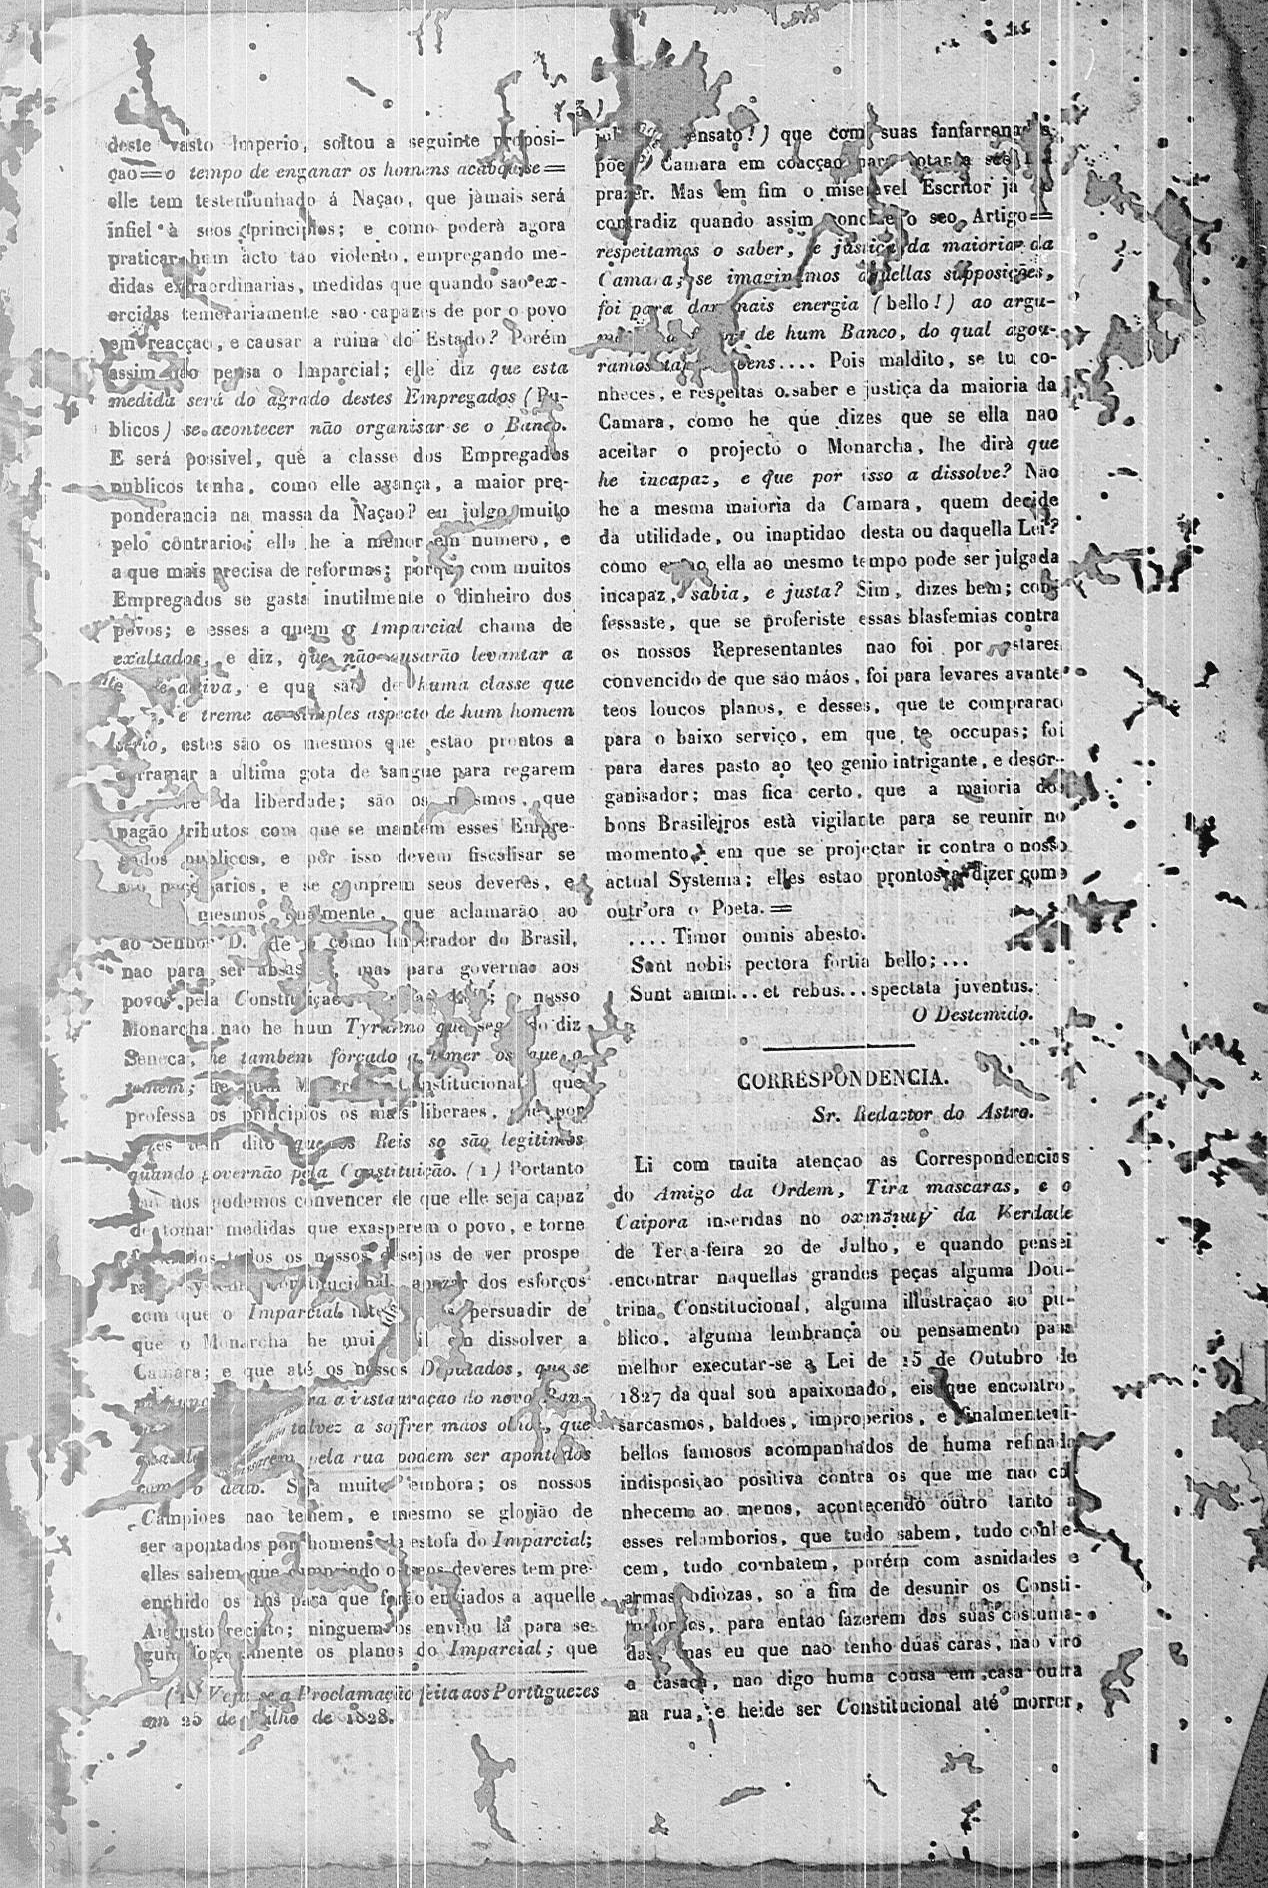 ( 3 )
deste vasto Imperio, soltou a seguinte proposi-
çao=o tempo de enganar os homens acabou-se=
elle tem testemunhado á Naçao, que jàmais será
infiel à seos principios; e como poderà agora
praticar hum acto tao violento, empregando me-
didas extraordinarias, medidas que quando sao ex-
ercidas temerariamente sao capazes de por o povo
em reacçao, e causar a ruina do Estado? Porém
assim não pensa o Imparcial; elle diz que esta
medida será do agrado destes Empregados (Pu-
blicos) se acontecer não organisar-se o Banco.
E será possivel, que a classe dos Empregados
publicos tenha, como elle avança, a maior pre-
ponderancia na massa da Naçao? eu julgo muito
pelo contrario; elle he a menor em numero, e
a que mais precisa de reformas; porque com muitos
Empregados se gasta inutilmente o dinheiro dos
povos; e esses a quem o Imparcial chama de
exaltados, e diz, que não ousarão levantar a
activa, e que são de huma classe que
e treme ao simples aspecto de hum homem
serio, estes são os mesmos que estao promtos a
derramar a ultima gota de sangue para regarem
da liberdade; são os mesmos, que
pagão tributos com que se mantem esses Empre-
gados publicos, e por isso devem fiscalisar se
são necessarios, e se cumprem seos deveres, e
mesmos finalmente, que aclamarão ao
ao Senhor D. de como Imperador do Brasil,
nao para ser mas para governao aos
povos pela Constituiçao nosso
Monarcha nao he hum Tyranno que segundo diz
Seneca, he tambem forçado a temer os que o
temem; he hum Constitucional, que
professa os principios os mais liberaes, he por
vezes tem dito que os Reis so são legitimos
quando governão pela Constituição. (1) Portanto
nao nos podemos convencer de que elle seja capaz
de tomar medidas que exasperem o povo, e torne
todos os nossos desejos de ver prospe
apezar dos esforços
com que o Imparcial persuadir de
que o Monarcha he mui em dissolver a
Camara; e que até os nossos Deputados, que se
ra a instauração do novo Ban-
talvez a soffrer máos olhos, que
pela rua podem ser apontados
com o dedo. Seja muito embora; os nossos
Campioes nao temem, e mesmo se glorião de
ser apontados por homens da estofa do Imparcial;
elles sabem que cumprindo o seos deveres tem pre-
enchido os fins para que forão enviados a aquelle
Augusto recinto; ninguem os enviou lá para se-
guir os planos do Imparcial; que
(1) Veja-se a Proclamação feita aos Portuguezes
em 25 de Julho de 1828.
ensato!) que com suas fanfarronadas
põe a Camara em coacçao para votar a seo
prazer. Mas em fim o miseravel Escritor já se
contradiz quando assim conclue o seo Artigo=
respeitamos o saber, e justiça da maioria da
Camara; se imaginamos aquellas supposições,
foi para dar mais energia (bello!) ao argu-
de hum Banco, do qual agou-
ramos bens.... Pois maldito, se tu co-
nheces, e respeitas o saber e justiça da maioria da
Camara, como he que dizes que se ella nao
aceitar o projecto o Monarcha, lhe dirà que
he incapaz, e que por isso a dissolve? Nao
he a mesma maioria da Camara, quem decide
da utilidade, ou inaptidao desta ou daquella Lei?
como entao ella ao mesmo tempo pode ser julgada
incapaz, sabia, e justa? Sim, dizes bem; con-
fessaste, que se proferiste essas blasfemias contra
os nossos Representantes nao foi por estares
convencido de que são máos, foi para levares avante
teos loucos planos, e desses, que te comprarao
para o baixo serviço, em que te occupas; foi
para dares pasto ao teo genio intrigante, e desor-
ganisador; mas fica certo, que a maioria dos
bons Brasileiros està vigilante para se reunir no
momento, em que se projectar ir contra o nosso
actual Systema; elles estao prontos a dizer como
outr'ora o Poeta.=
.... Timor omnis abesto.
Sunt nobis pectora fortia bello;...
Sunt animi...et rebus...spectata juventus.
O Destemido.
CORRESPONDENCIA.
Sr. Redactor do Astro.
Li com muita atençao as Correspondencias
do Amigo da Ordem, Tira mascaras, e o
Caipora inseridas no da Verdade
de Terça-feira 20 de Julho, e quando pensei
encontrar naquellas grandes peças alguma Dou-
trina Constitucional, alguma illustraçao ao pu-
blico, alguma lembrança ou pensamento para
melhor executar-se a Lei de 15 de Outubro de
1827 da qual sou apaixonado, eis que encontro,
sarcasmos, baldoes, improperios, e finalmente li-
bellos famosos acompanhados de huma refinada
indisposiçao positiva contra os que me nao co-
nhecem ao menos, acontecendo outro tanto a
esses relamborios, que tudo sabem, tudo conhe-
cem, tudo combatem, porém com asnidades e
armas odiozas, so a fim de desunir os Consti-
para entao fazerem das suas costuma-
das mas eu que nao tenho duas caras, nao viro
a casaca, nao digo huma cousa em casa outra
na rua, e heide ser Constitucional até morrer,